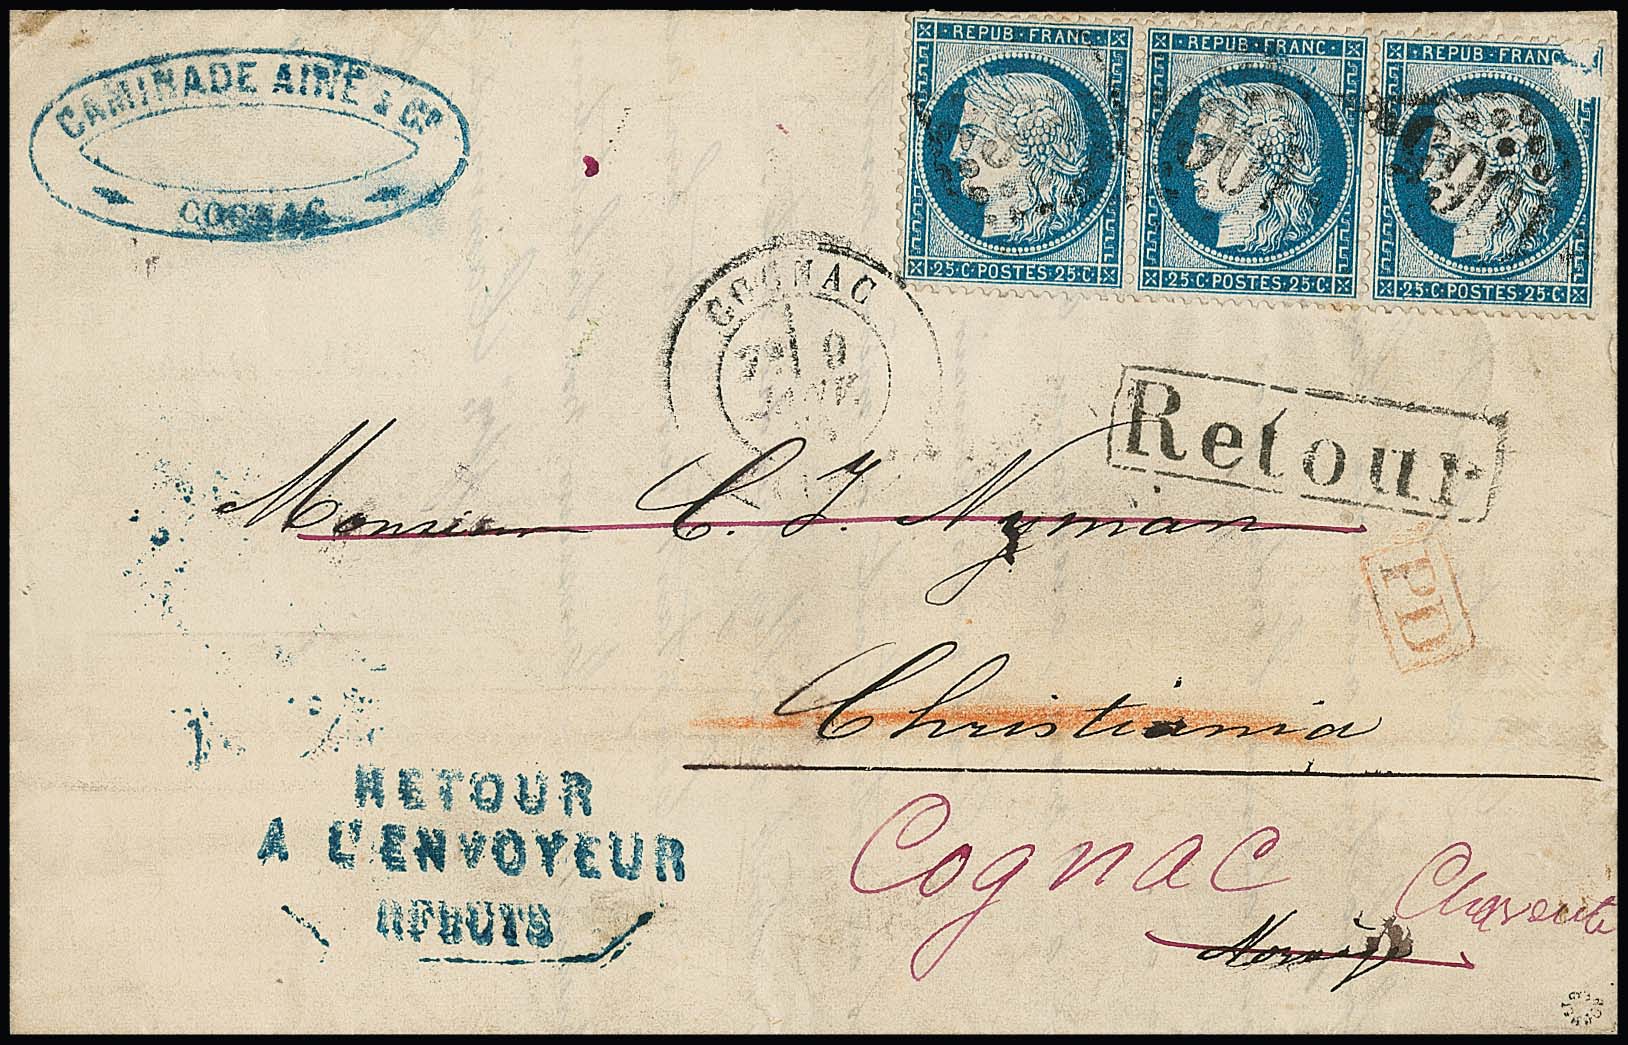 CAMINADE AINÉ & Cº
COGNAC
REPUB FRANC REPUB FRANC REPUB FRANC
25 C POSTES 25 C 25 C POSTES 25 C 25 C POSTES 25 C
COGNAC
9
JANV
Retour
Monsieur C. J. Nyman
PD
Christiania
RETOUR
A L'ENVOYEUR
REBUTS
Cognac
Charente